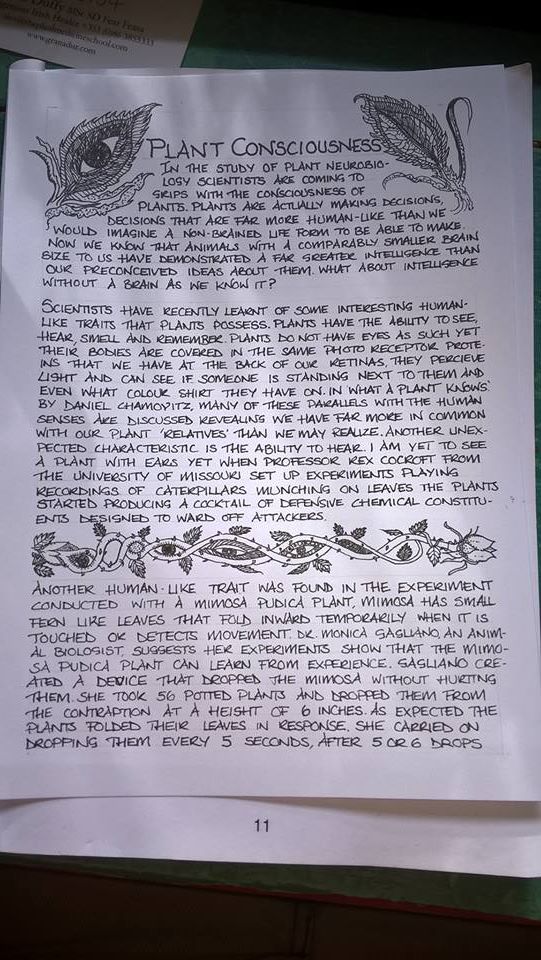 Duffy BSc SD Fen Feasa
www.grianadur.com
PLANT CONSCIOUSNESS
IN THE STUDY OF PLANT NEUROBIO-
LOGY SCIENTISTS ARE COMING TO
GRIPS WITH THE CONSCIOUSNESS OF
PLANTS. PLANTS ARE ACTUALLY MAKING DECISIONS,
DECISIONS THAT ARE FAR MORE HUMAN-LIKE THAN WE
WOULD IMAGINE A NON-BRAINED LIFE FORM TO BE ABLE TO MAKE.
NOW WE KNOW THAT ANIMALS WITH A COMPARABLY SMALLER BRAIN
SIZE TO US HAVE DEMONSTRATED A FAR GREATER INTELLIGENCE THAN
OUR PRECONCEIVED IDEAS ABOUT THEM. WHAT ABOUT INTELLIGENCE
WITHOUT A BRAIN AS WE KNOW IT?
SCIENTISTS HAVE RECENTLY LEARNT OF SOME INTERESTING HUMAN-
LIKE TRAITS THAT PLANTS POSSESS. PLANTS HAVE THE ABILITY TO SEE,
HEAR, SMELL AND REMEMBER. PLANTS DO NOT HAVE EYES AS SUCH YET
THEIR BODIES ARE COVERED IN THE SAME PHOTO RECEPTOR PROTE-
INS THAT WE HAVE AT THE BACK OF OUR RETINAS, THEY PERCIEVE
LIGHT AND CAN SEE IF SOMEONE IS STANDING NEXT TO THEM AND
EVEN WHAT COLOUR SHIRT THEY HAVE ON. IN 'WHAT A PLANT KNOWS'
BY DANIEL CHAMOVITZ, MANY OF THESE PARALLELS WITH THE HUMAN
SENSES ARE DISCUSSED REVEALING WE HAVE FAR MORE IN COMMON
WITH OUR PLANT 'RELATIVES' THAN WE MAY REALIZE. ANOTHER UNEX-
PECTED CHARACTERISTIC IS THE ABILITY TO HEAR. I AM YET TO SEE
A PLANT WITH EARS YET WHEN PROFESSOR REX COCROFT FROM
THE UNIVERSITY OF MISSOURI SET UP EXPERIMENTS PLAYING
RECORDINGS OF CATERPILLARS MUNCHING ON LEAVES THE PLANTS
STARTED PRODUCING A COCKTAIL OF DEFENSIVE CHEMICAL CONSTITU-
ENTS DESIGNED TO WARD OFF ATTACKERS.
ANOTHER HUMAN-LIKE TRAIT WAS FOUND IN THE EXPERIMENT
CONDUCTED WITH A MIMOSA PUDICA PLANT, MIMOSA HAS SMALL
FERN LIKE LEAVES THAT FOLD INWARD TEMPORARILY WHEN IT IS
TOUCHED OR DETECTS MOVEMENT. DR. MONICA GAGLIANO, AN ANIM-
AL BIOLOGIST, SUGGESTS HER EXPERIMENTS SHOW THAT THE MIMO-
SA PUDICA PLANT CAN LEARN FROM EXPERIENCE. GAGLIANO CRE-
ATED A DEVICE THAT DROPPED THE MIMOSA WITHOUT HURTING
THEM. SHE TOOK 56 POTTED PLANTS AND DROPPED THEM FROM
THE CONTRAPTION AT A HEIGHT OF 6 INCHES. AS EXPECTED THE
PLANTS FOLDED THEIR LEAVES IN RESPONSE. SHE CARRIED ON
DROPPING THEM EVERY 5 SECONDS, AFTER 5 OR 6 DROPS
11